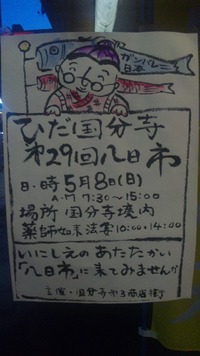 ガンバレ
日本
ひだ国分寺
第29回八日市
日・時 5月8日(日)
A.M 7:30〜15:00
場所 国分寺境内
薬師如来法要 10:00・14:00
いにしえのあたたかい
「八日市」に来てみませんか
主催・国分寺